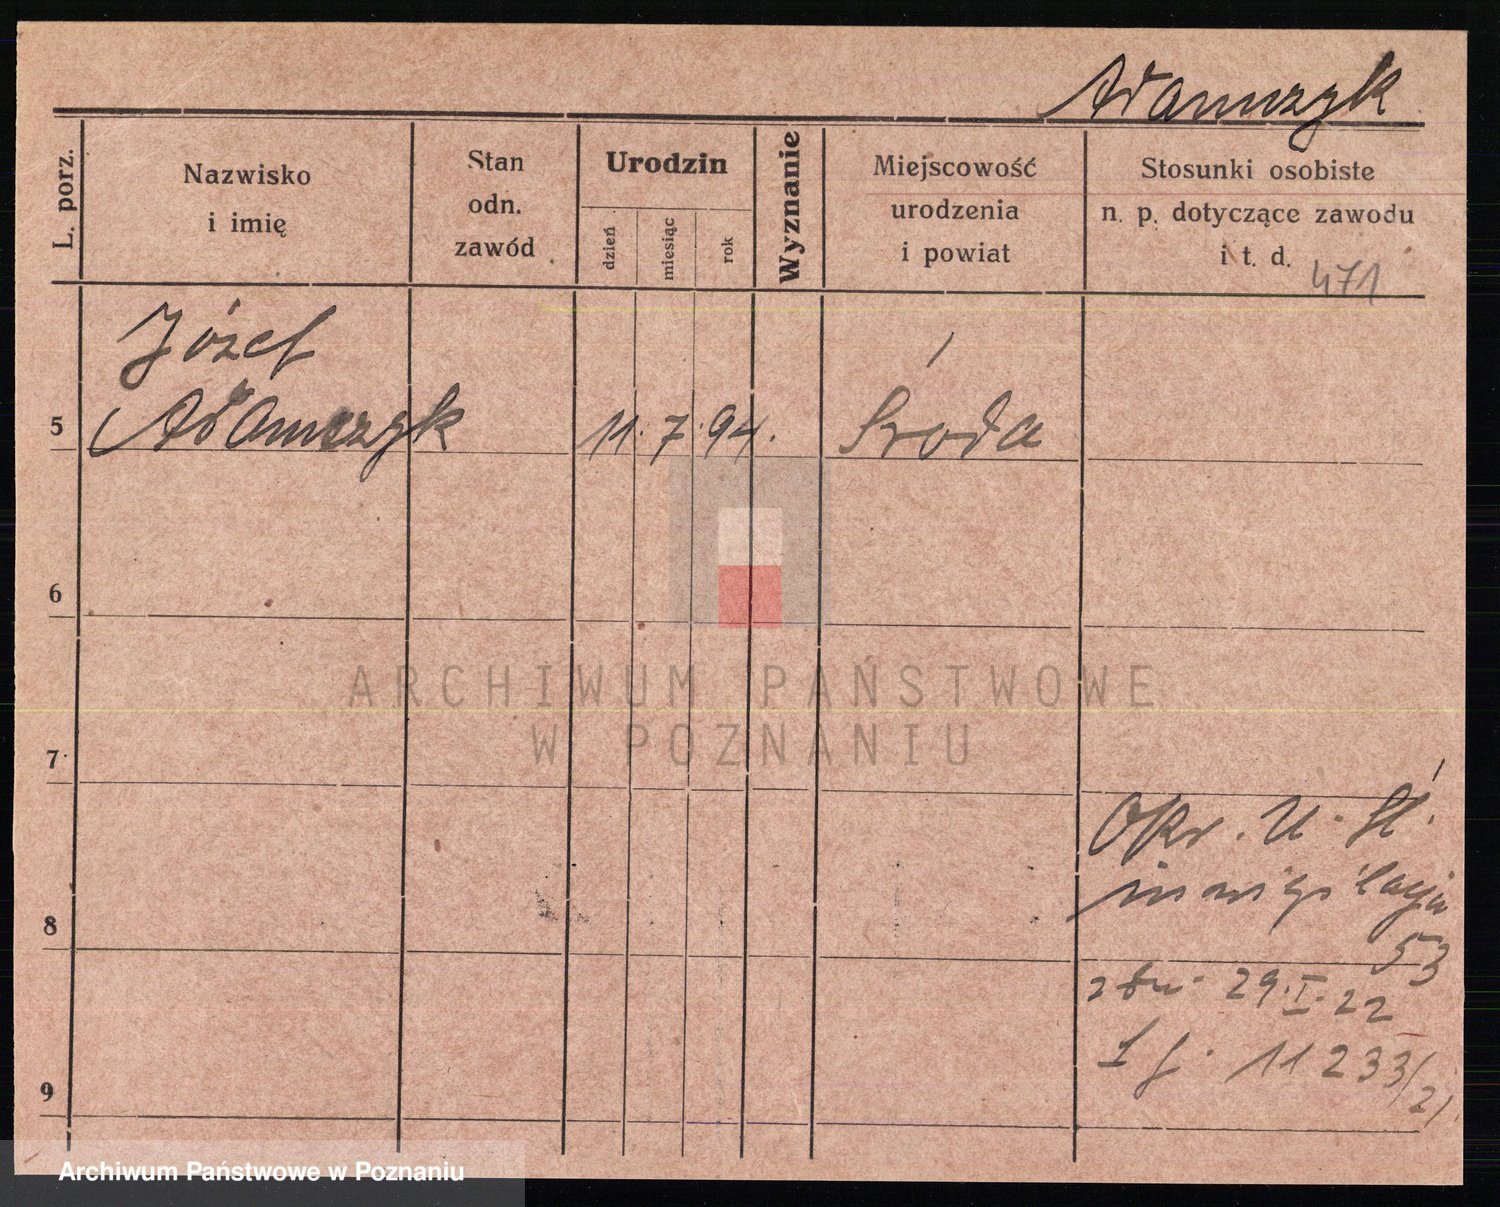 Adamczyk
L. porz.
Nazwisko
i imię
Stan
odn.
zawód
Urodzin
dzień
miesiąc
rok
Wyznanie
Miejscowość
urodzenia
i powiat
Stosunki osobiste
n. p. dotyczące zawodu
i t. d.
471
Józef
5 Adamczyk 11. 7. 94. Środa
6
ARCHIWUM PAŃSTWOWE
W POZNANIU
7
Okr. U. Śl.
inwigilacja
8
53
z dn. 29.I.22
11233/21
9
Archiwum Państwowe w Poznaniu